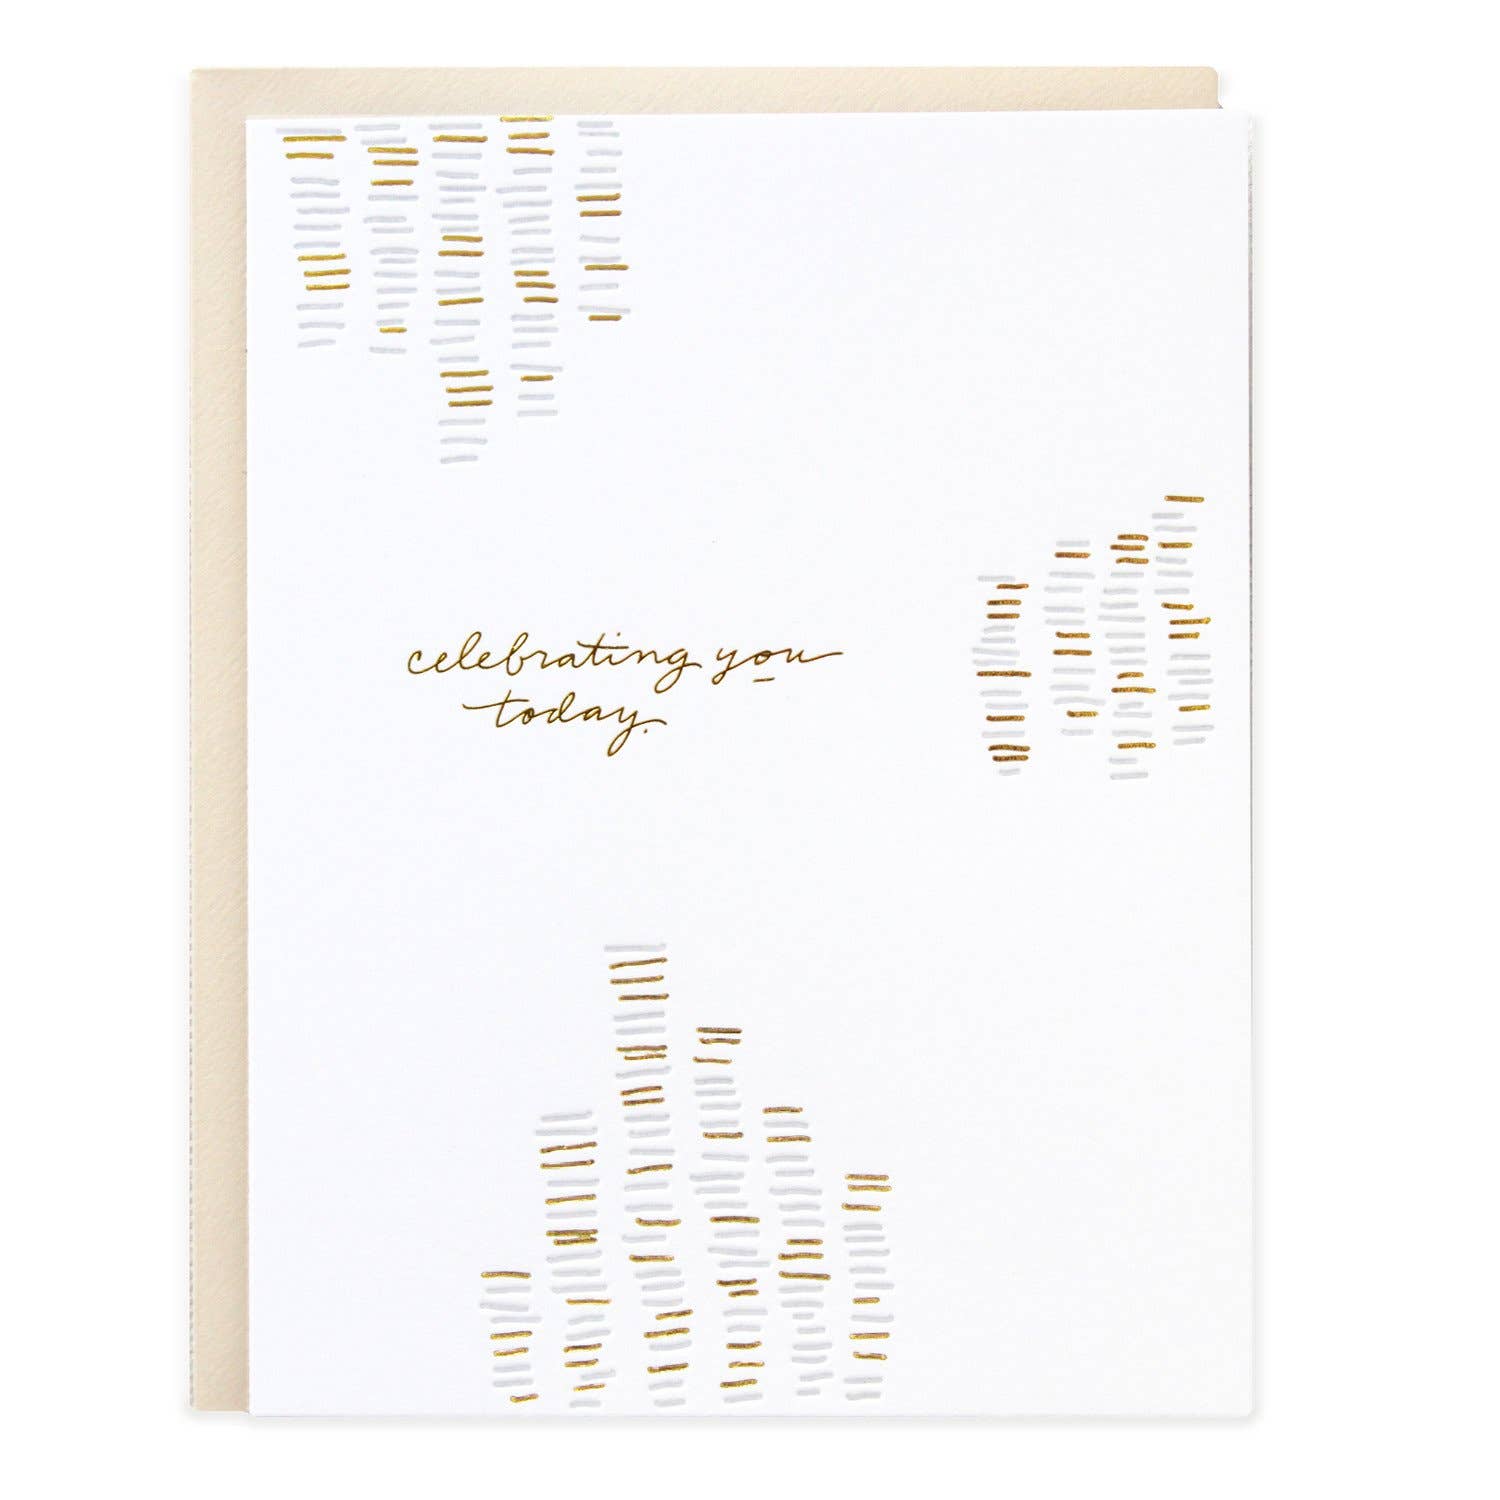 celebrating you
today.